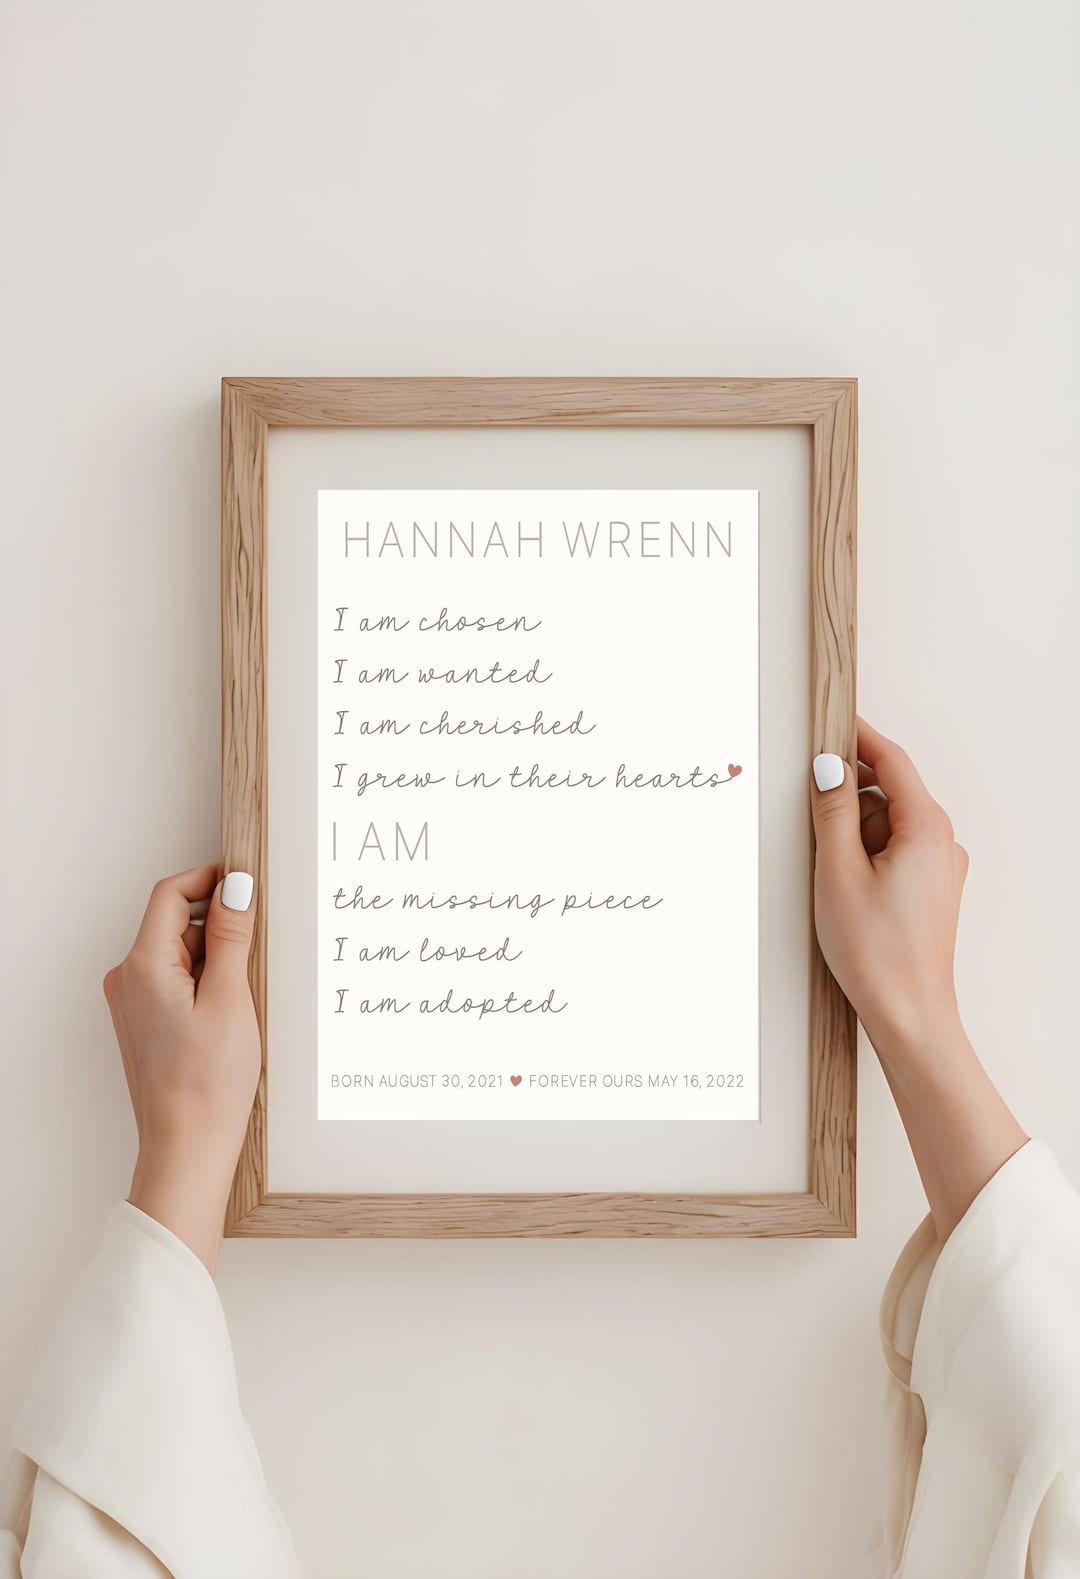 HANNAH WRENN
I am chosen
I am wanted
I am cherished
I grew in their hearts♥
I AM
the missing piece
I am loved
I am adopted
BORN AUGUST 30, 2021 ♥ FOREVER OURS MAY 16, 2022